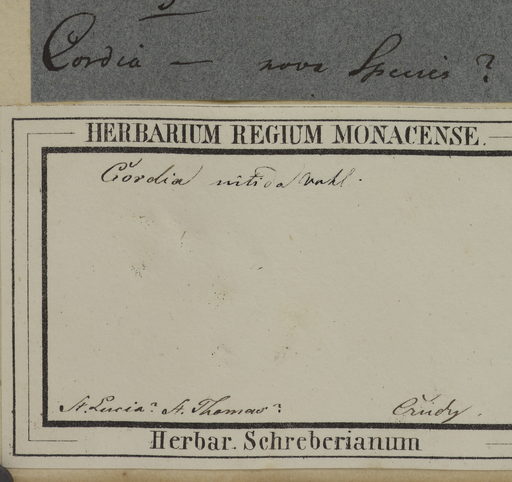 Cordia — nova Species?
HERBARIUM REGIUM MONACENSE.
Cordia nitida Vahl.
St. Lucia? St. Thomas? Crudy.
Herbar. Schreberianum